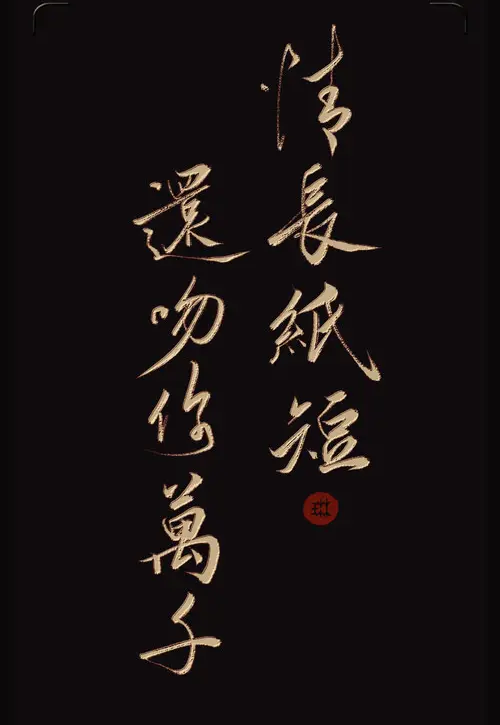 情長紙短
還吻你萬千